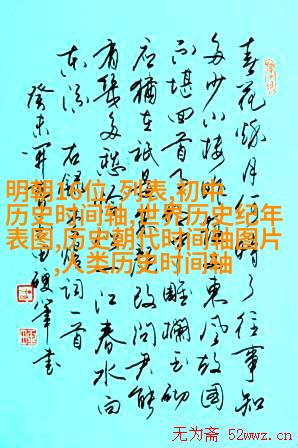 春花秋月何時了往事知
多少小樓昨夜又東風故国
不堪回首月明中雕欄玉砌
应猶在祇是朱颜改问君能
有几多愁恰似一江春水向
东流 右録李煜词一首
癸未 硬筆书
明朝16位,列表,初中
历史时间轴,世界历史纪年
表图,历史朝代时间轴图片
,人类历史时间轴
无为斋 52wwz.cn